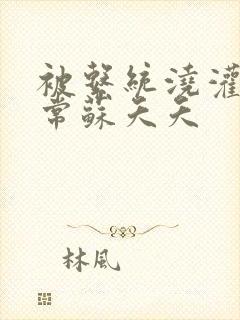 被繫統澆灌
常蘇天天
林風